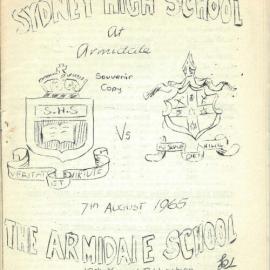 SYDNEY HIGH SCHOOL
at
Armidale
Souvenir
Copy
S.H.S
Vs
VERITATE ET VIRTUTE
7TH AUGUST 1965
THE ARMIDALE SCHOOL